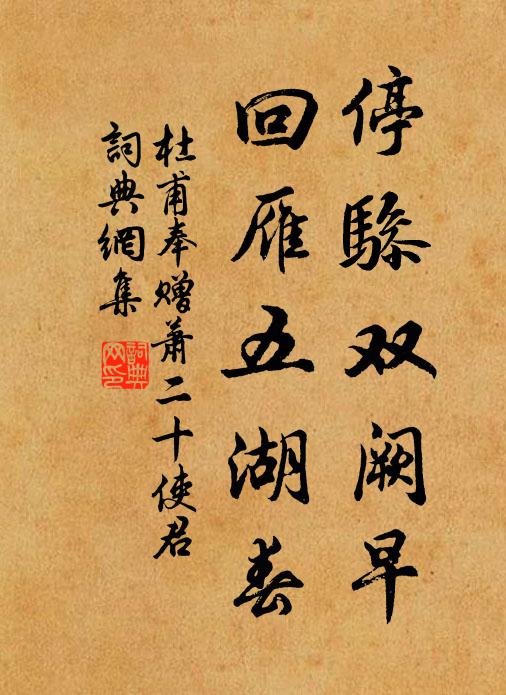 停骖双阙早
回雁五湖春
杜甫奉赠萧二十使君
词典网集
词典网印